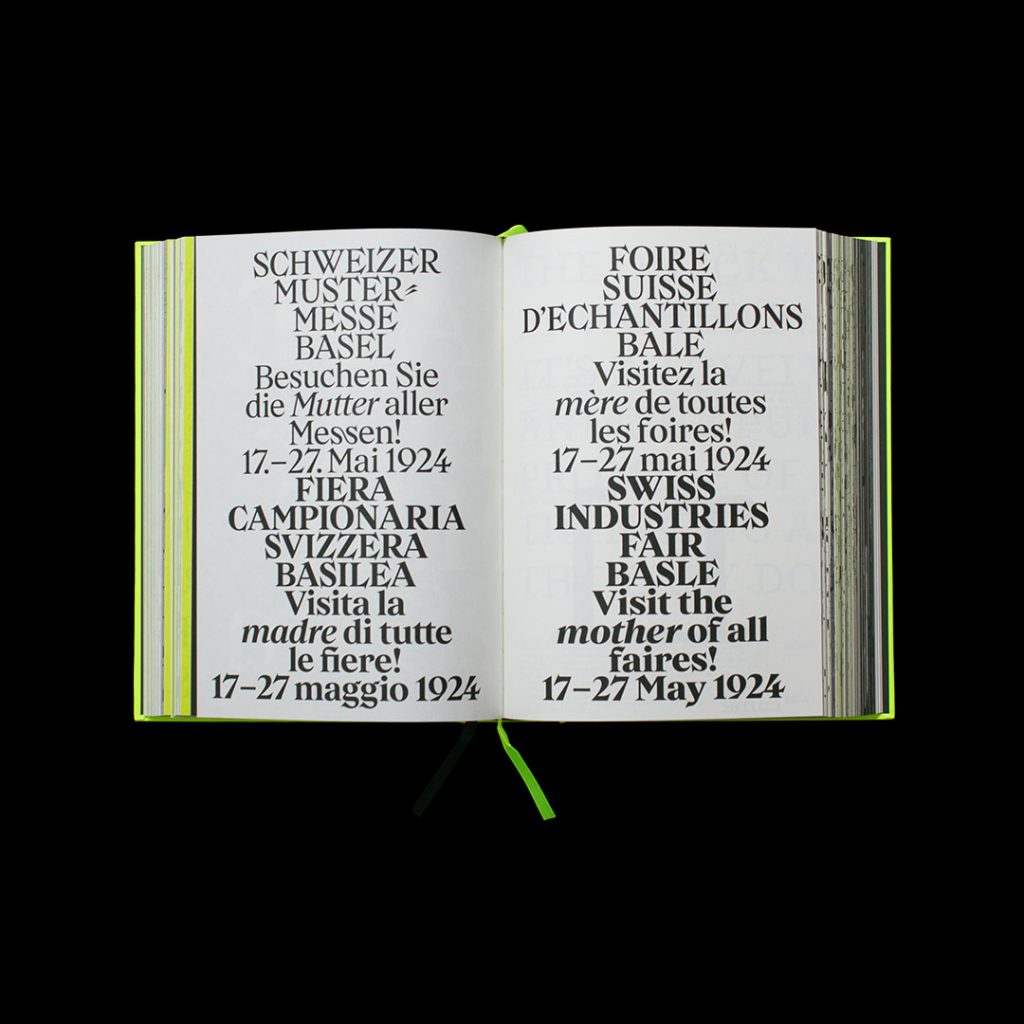 SCHWEIZER
MUSTER-
MESSE
BASEL
Besuchen Sie
die Mutter aller
Messen!
17.–27. Mai 1924
FIERA
CAMPIONARIA
SVIZZERA
BASILEA
Visita la
madre di tutte
le fiere!
17–27 maggio 1924
FOIRE
SUISSE
D'ECHANTILLONS
BALE
Visitez la
mère de toutes
les foires!
17–27 mai 1924
SWISS
INDUSTRIES
FAIR
BASLE
Visit the
mother of all
faires!
17–27 May 1924